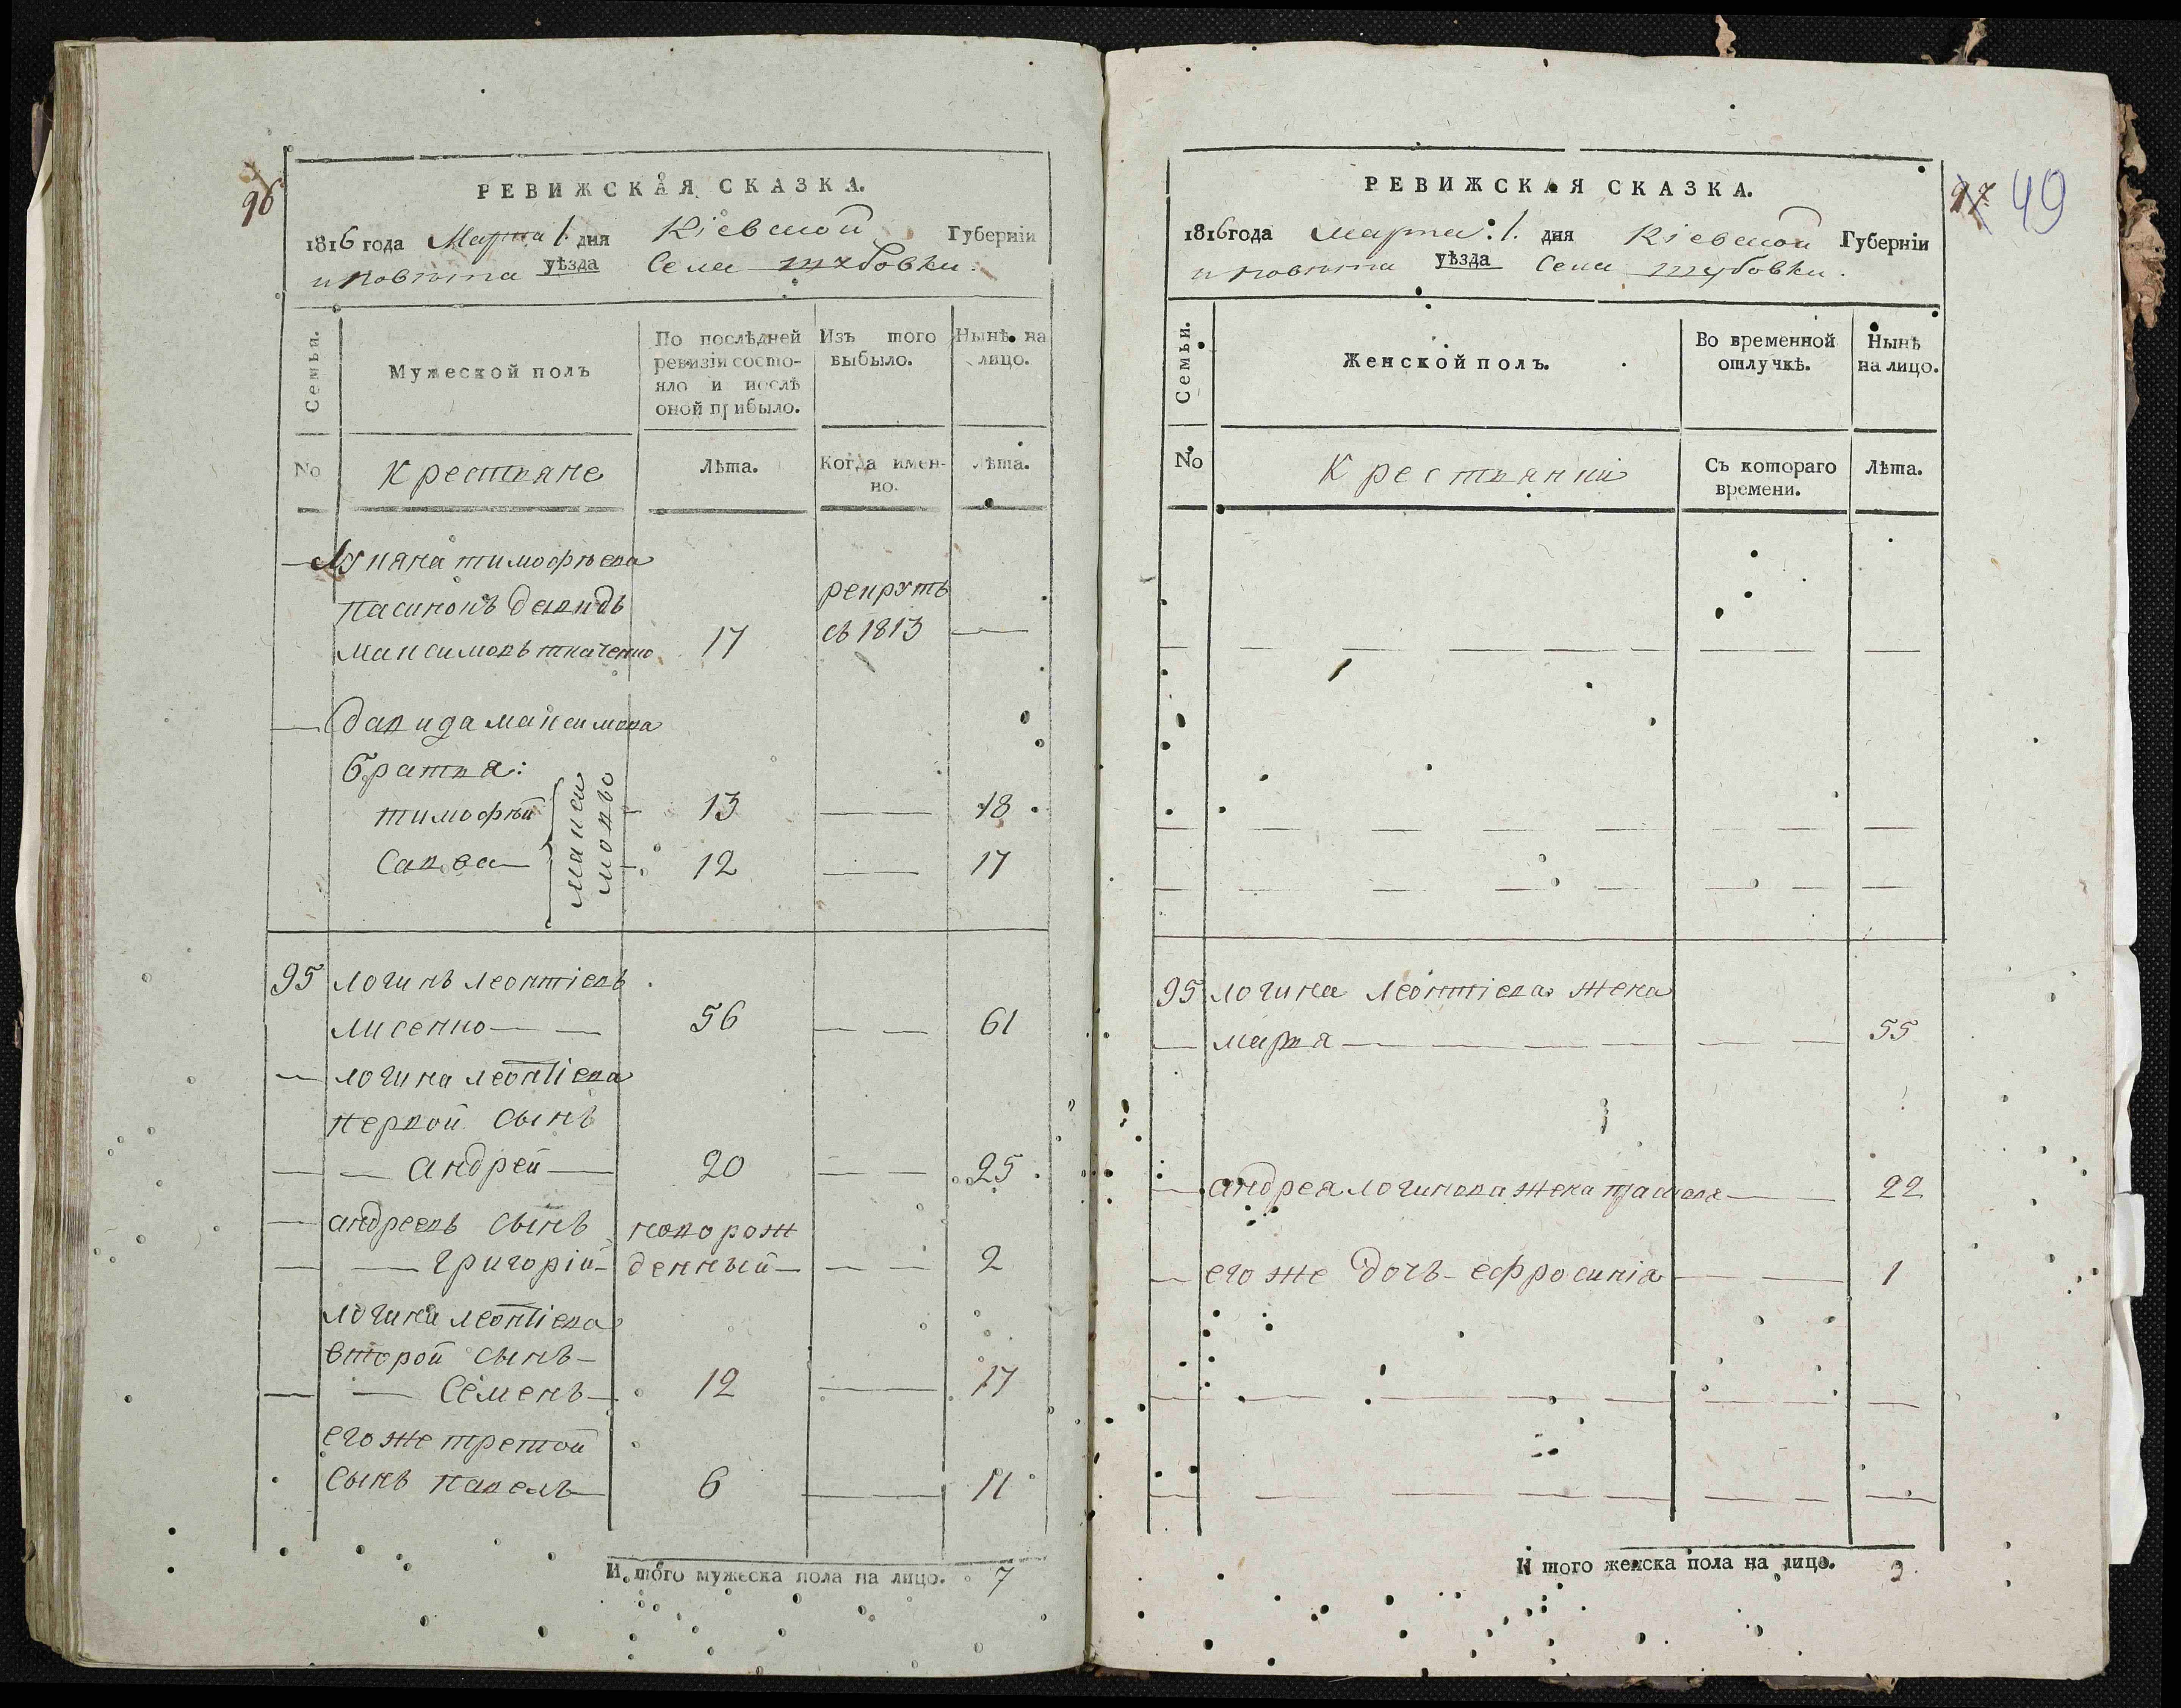 96
РЕВИЖСКАЯ СКАЗКА.
1816 года Марта 1. дня Кіевской Губерніи
и повѣта уѣзда Села тубовки.
Семьи.
Мужеской полъ
По послѣдней ревизіи состояло и послѣ оной прибыло.
Изъ того выбыло.
Нынѣ на лицо.
No
Крестьяне
Лѣта.
Когда именно.
лѣта.
пасинокъ давидъ
рекрутъ
максимовъ ткаченко 17 съ 1813 —
— давида максимова
братья:
тимофѣй 13 — 18
савва — 12 — 17
максимовы
95 логинъ леонтіевъ
лисенко — — 56 — — 61
— логина леонтіева
первой сынъ
— — андрей — 20 — — 25
— андреевъ сынъ новорож
— — григорій — денный — — — 2
логина леонтіева
второй сынъ —
— — семенъ — 12 — 17
его же третой
сынъ павелъ — 6 — 11
Итого мужеска пола на лицо. 7
97 49
РЕВИЖСКАЯ СКАЗКА.
1816 года марта: 1. дня Кіевской Губерніи
и повѣта уѣзда Села тубовки.
Семьи.
Женской полъ.
Во временной отлучкѣ.
Нынѣ на лицо.
No
Крестьянки
Съ котораго времени.
Лѣта.
95 логина леонтіева жена
— марья — — — — 55
— андрея логинова жена — — 22
— его же дочь — ефросинія — — 1
Итого женска пола на лицо. 3